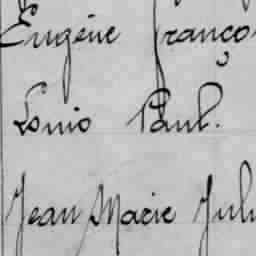 Eugène Franço
Louis Paul.
Jean Marie Juli